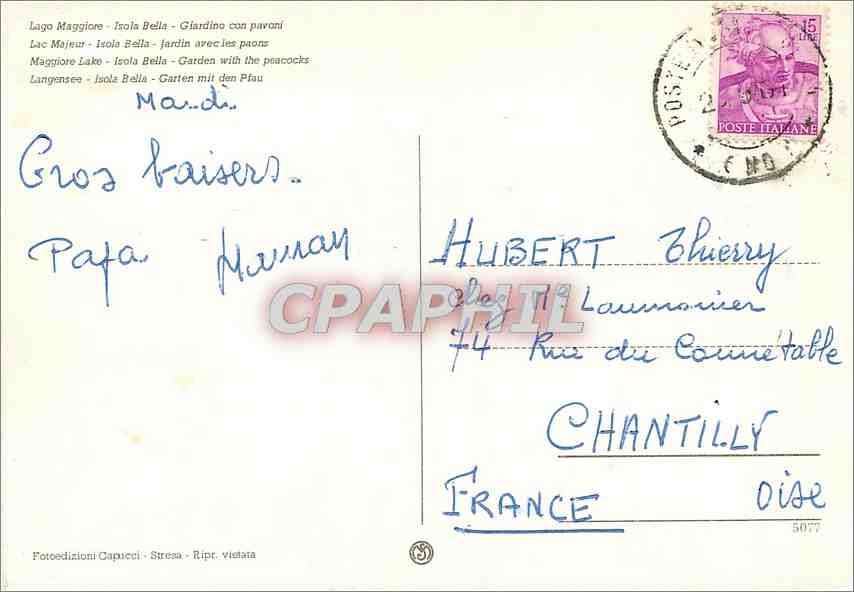 Lago Maggiore - Isola Bella - Giardino con pavoni
Lac Majeur - Isola Bella - Jardin avec les paons
Maggiore Lake - Isola Bella - Garden with the peacocks
Langensee - Isola Bella - Garten mit den Pfau
Mardi
Gros baisers.
Papa Maman
15
LIRE
POSTE ITALIANE
POSTE
HUBERT Thierry
chez Me Laumonier
74 Rue du Connétable
CHANTILLY
FRANCE Oise
5077
Fotoedizioni Capucci - Stresa - Ripr. vietata
CPAPHIL